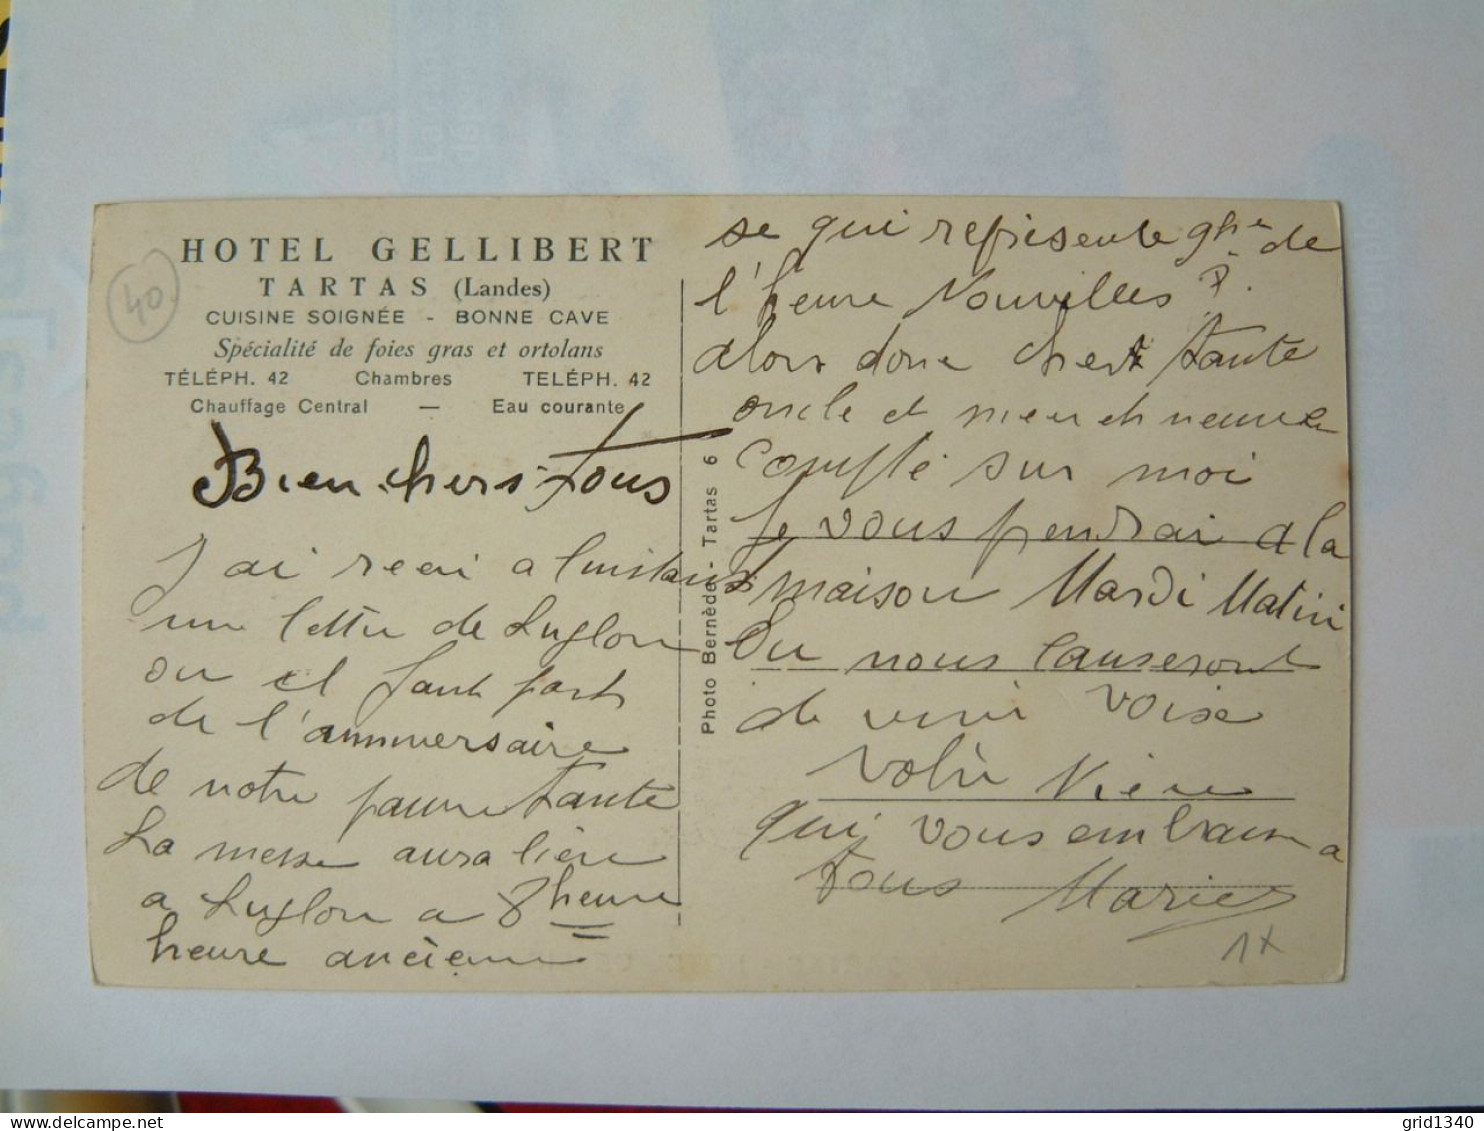 HOTEL GELLIBERT
TARTAS (Landes)
CUISINE SOIGNÉE - BONNE CAVE
Spécialité de foies gras et ortolans
TÉLÉPH. 42 Chambres TELÉPH. 42
Chauffage Central — Eau courante
40
Bien chers tous
J'ai recu a linstant
un lettre de Luglon
ou il faut part
de l'anniversaire
de notre pauvre tante
La messe aura lieu
a Luglon a 8 heure
heure ancienne
Photo Bernède - Tartas 6
se qui represente 9h de
l'heure Nouvelles
alors donc cher tante
oncle et
compté sur moi
Je vous prendrai a la
maison Mardi Matin
Ou nous causeront
de vive voise
votre Nièce
qui vous embrasse a
tous Marie
1x
grid1340